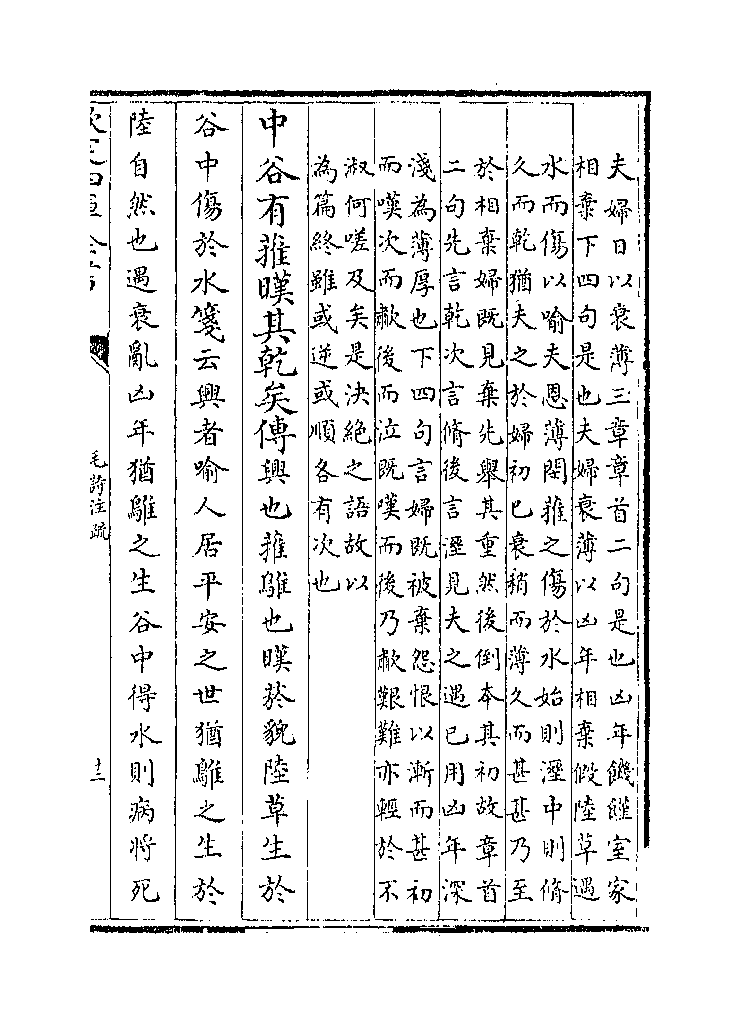 夫婦日以衰薄三章章首二句是也凶年饑饉室家
相棄下四句是也夫婦衰薄以凶年相棄假陸草遇
水而傷以喻夫恩薄閔蓷之傷於水始則溼中則脩
久而乾猶夫之於婦初已衰稍而薄久而甚甚乃至
於相棄婦既見棄先舉其重然後倒本其初故章首
二句先言乾次言脩後言溼見夫之遇已用凶年深
淺為薄厚也下四句言婦既被棄怨恨以漸而甚初
而嘆次而歗後而泣既嘆而後乃歗艱難亦輕於不
淑何嗟及矣是決絶之語故以
為篇終雖或逆或順各有次也
中谷有蓷暵其乾矣傳興也蓷鵻也暵菸貌陸草生於
谷中傷於水箋云興者喻人居平安之世猶鵻之生於
陸自然也遇衰亂凶年猶鵻之生谷中得水則病將死
欽定四庫全書
毛詩注疏
十二